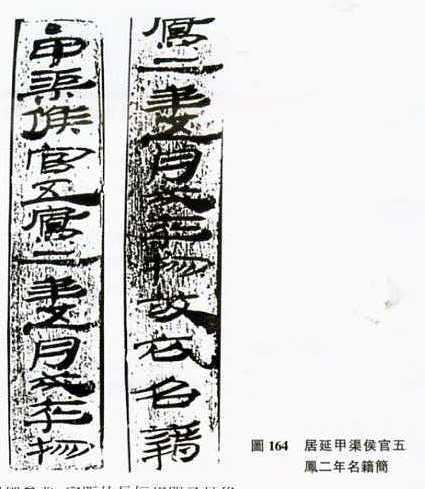 甲渠候官五鳳二年五月戍卒物
鳳二年五月戍卒物故衣名籍
圖 164 居延甲渠侯官五
鳳二年名籍簡